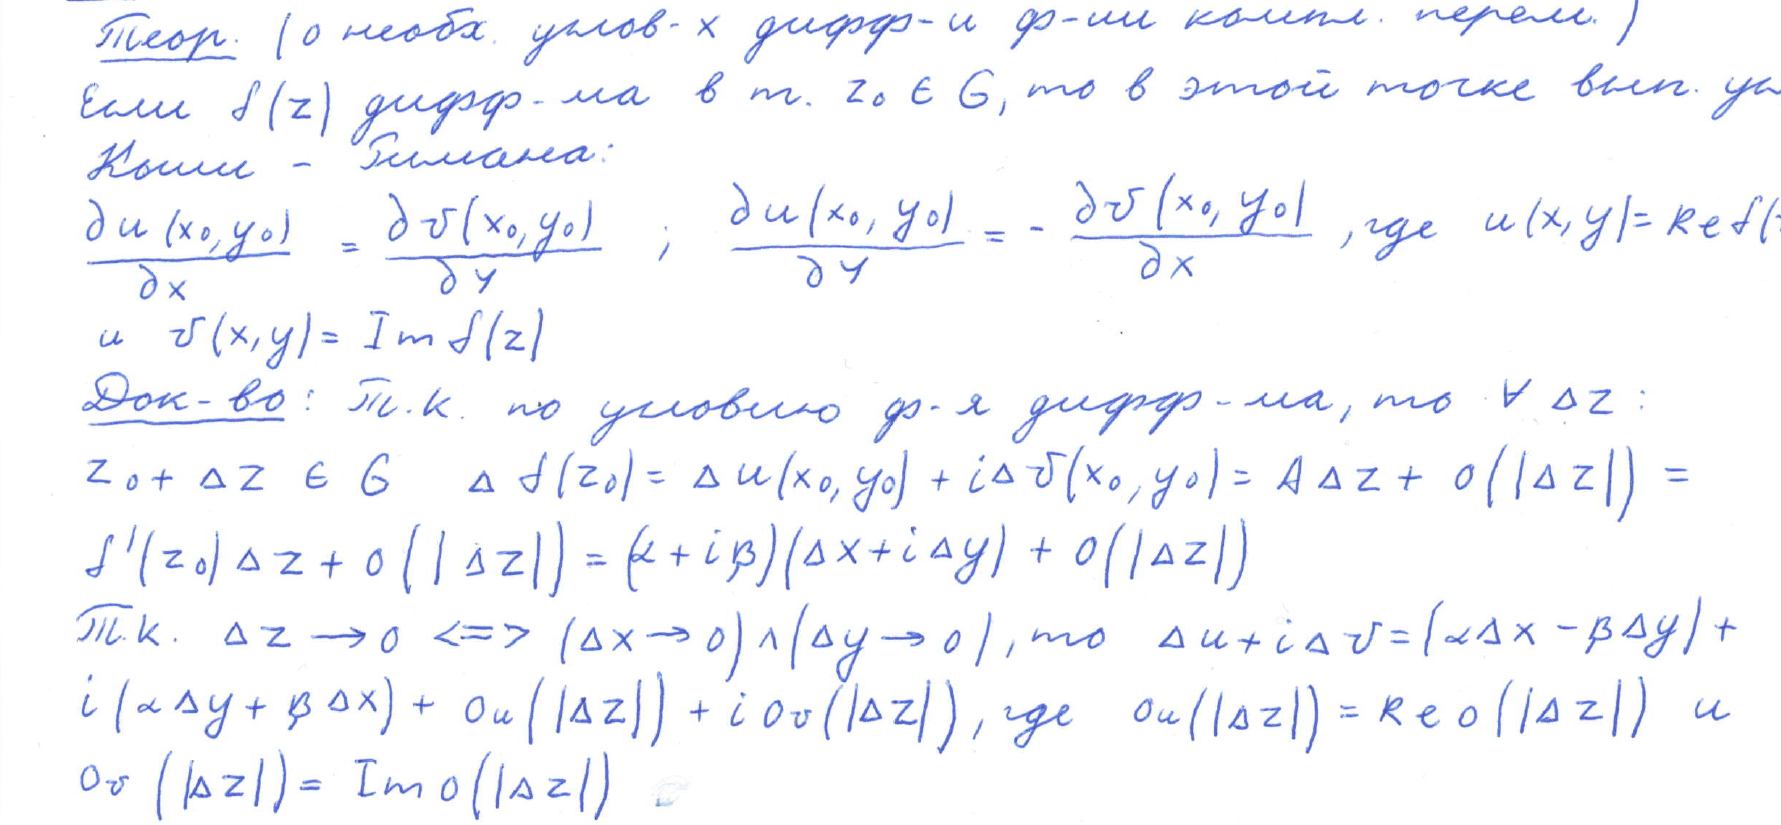 Теор. (о необх. услов-х дифф-и ф-ии компл. перем.)
Если f(z) дифф-ма в т. z₀ ∈ G, то в этой точке вып. ус
Коши - Римана:
∂u(x₀, y₀)/∂x = ∂v(x₀, y₀)/∂y ; ∂u(x₀, y₀)/∂y = - ∂v(x₀, y₀)/∂x , где u(x, y) = Re f(
и v(x, y) = Im f(z)
Док-во: Т.к. по условию ф-я дифф-ма, то ∀ Δz :
z₀ + Δz ∈ G Δf(z₀) = Δu(x₀, y₀) + iΔv(x₀, y₀) = AΔz + o(|Δz|) =
f'(z₀)Δz + o(|Δz|) = (α + iβ)(Δx + iΔy) + o(|Δz|)
Т.к. Δz → 0 <=> (Δx → 0) ∧ (Δy → 0), то Δu + iΔv = (αΔx - βΔy) +
i(αΔy + βΔx) + oᵤ(|Δz|) + i oᵥ(|Δz|), где oᵤ(|Δz|) = Re o(|Δz|) и
oᵥ(|Δz|) = Im o(|Δz|)